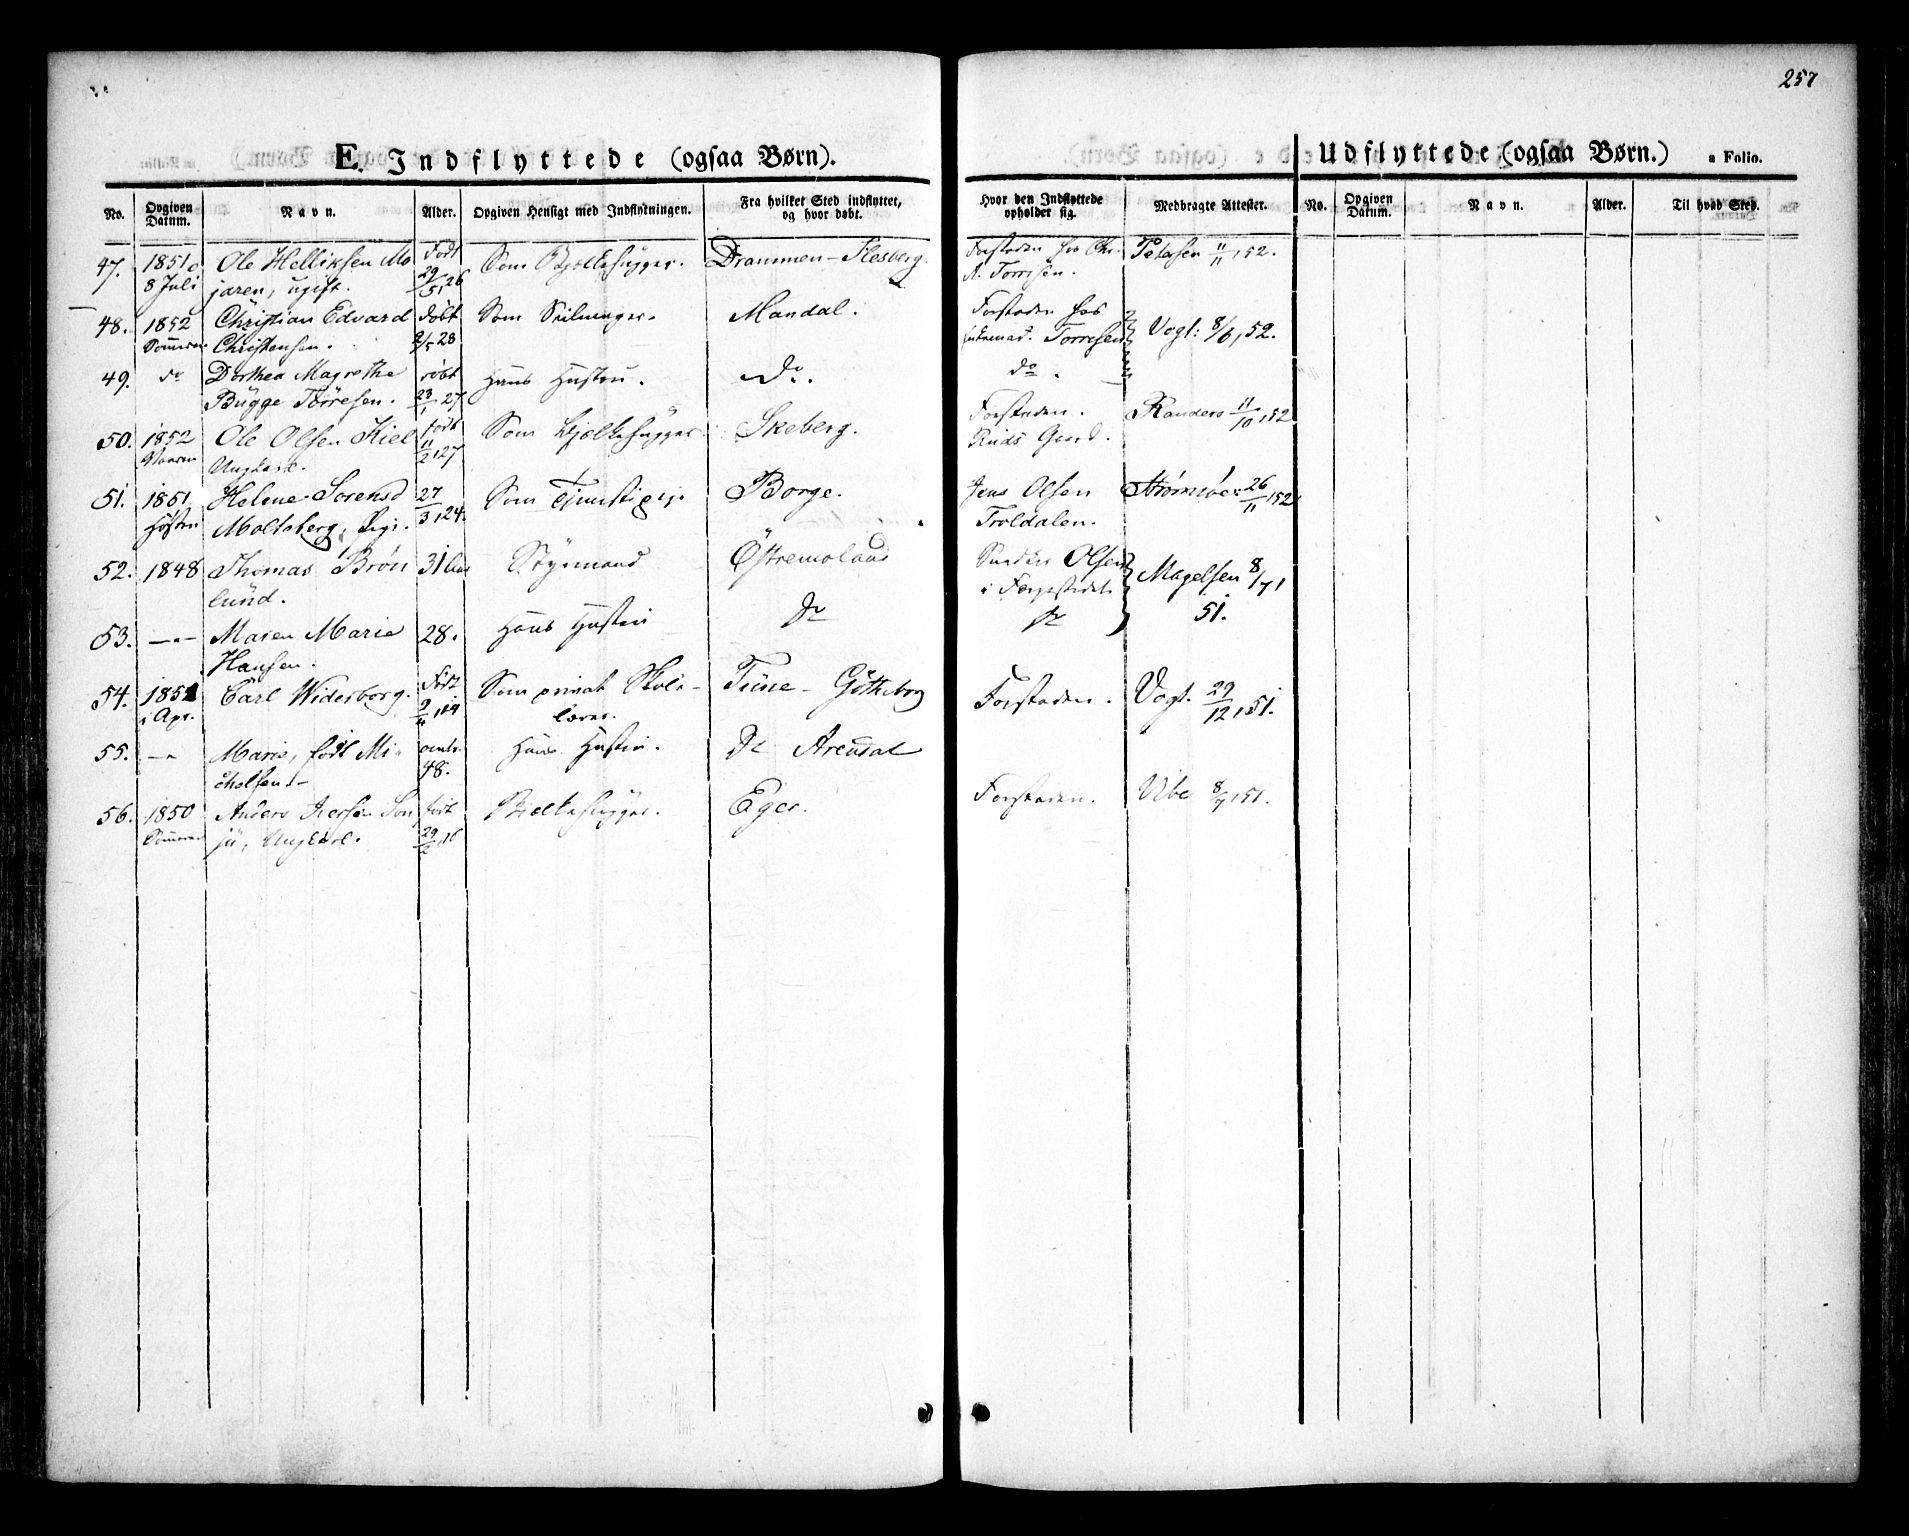 257
E. Indflyttede (ogsaa Børn).
Udflyttede (ogsaa Børn.) a Folio.
No. Opgiven Datum. Navn. Alder. Opgiven Hensigt med Indflytningen. Fra hvilket Sted indflyttet, og hvor døbt. Hvor den Indflyttede opholder sig. Medbragte Attester. No. Opgiven Datum. Navn. Alder. Til hvad Sted.
47. 1851 Ole Helliksen Mo Født Som Bjelkehugger. Drammen - Flesberg. Forstaden hos Chr. Petersen 11/11, 52.
8 Juli jaren, ugift. 29/5, 26 A. Torresen.
48. 1852 Christian Edvard døbt Som Mandal. Forstaden hos Vogt: 8/6, 52.
Sommeren Christensen. 2/5 28 Torresen
49. do Dorthea Magrethe Hans Hustru. do. do.
Bugge Torresen. 23/1 27
50. 1852 Ole Olsen Kiel født Som Bjælkehugger Skeberg. Forstaden. Randers 11/10, 52
Vaaren Ungkarl. 11/2, 27 Ruds Gaard.
51. 1851 Helene Sorensd 27 Som Tjenstepige Borge. Jens Olsen Strømsøe 26/11, 52
Høsten Moltzberg, Pige. /3, 24. Troldalen.
52. 1848 Thomas Brön 31 Aar Styrmand Østremoland Olsen Magelsen 8/7
lund. i
53. —"— Maren Marie 28. Hans Hustru do do 51.
Hansen.
54. 1851 Carl Widerborg. Født Som privat Skole- Tune - Götheborg Forstaden. Vogt. 29/12, 51.
i Apr. lærer.
55. —" Marie, født Mi- omtr. Hans Hustru. do Arendal
chelsen - 48.
56. 1850 Anders født Bjælkehugger. Eger. Forstaden. Ube 8/7, 51.
Sommeren Ungkarl. 29/2, 16